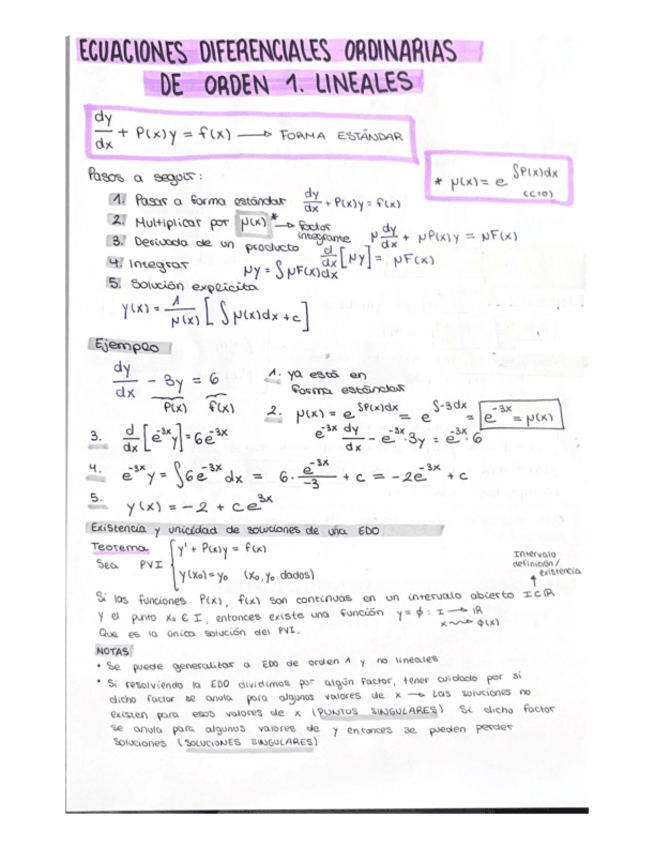 ECUACIONES DIFERENCIALES ORDINARIAS
DE ORDEN 1. LINEALES
dy/dx + P(x)y = f(x) → FORMA ESTÁNDAR
* μ(x) = e^∫P(x)dx
(c=0)
Pasos a seguir:
1. Pasar a forma estándar dy/dx + P(x)y = f(x)
2. Multiplicar por μ(x)* → factor integrante μ dy/dx + μP(x)y = μF(x)
3. Derivada de un producto d/dx [μy] = μF(x)
4. Integrar μy = ∫μF(x)dx
5. Solución explícita
y(x) = 1/μ(x) [∫μ(x)dx + c]
Ejemplo
dy/dx - 3y = 6
P(x) f(x)
1. ya está en
forma estándar
2. μ(x) = e^∫P(x)dx = e^∫-3dx = e^-3x = μ(x)
e^-3x dy/dx - e^-3x·3y = e^-3x·6
3. d/dx [e^-3x y] = 6e^-3x
4. e^-3x y = ∫6e^-3x dx = 6· e^-3x/-3 + c = -2e^-3x + c
5. y(x) = -2 + ce^3x
Existencia y unicidad de soluciones de una EDO
Teorema
Sea PVI { y' + P(x)y = f(x)
y(x₀) = y₀ (x₀, y₀ dados)
Intervalo
definición/
existencia
↑
Si las funciones P(x), f(x) son continuas en un intervalo abierto I⊂ℝ
y el punto x₀ ∈ I, entonces existe una función y = ϕ : I → ℝ
x ⇝ ϕ(x)
Que es la única solución del PVI.
NOTAS
• Se puede generalizar a EDO de orden 1 y no lineales
• Si resolviendo la EDO dividimos por algún factor, tener cuidado por si
dicho factor se anula para algunos valores de x → Las soluciones no
existen para esos valores de x (PUNTOS SINGULARES) Si dicho factor
se anula para algunos valores de y entonces se pueden perder
soluciones (SOLUCIONES SINGULARES)